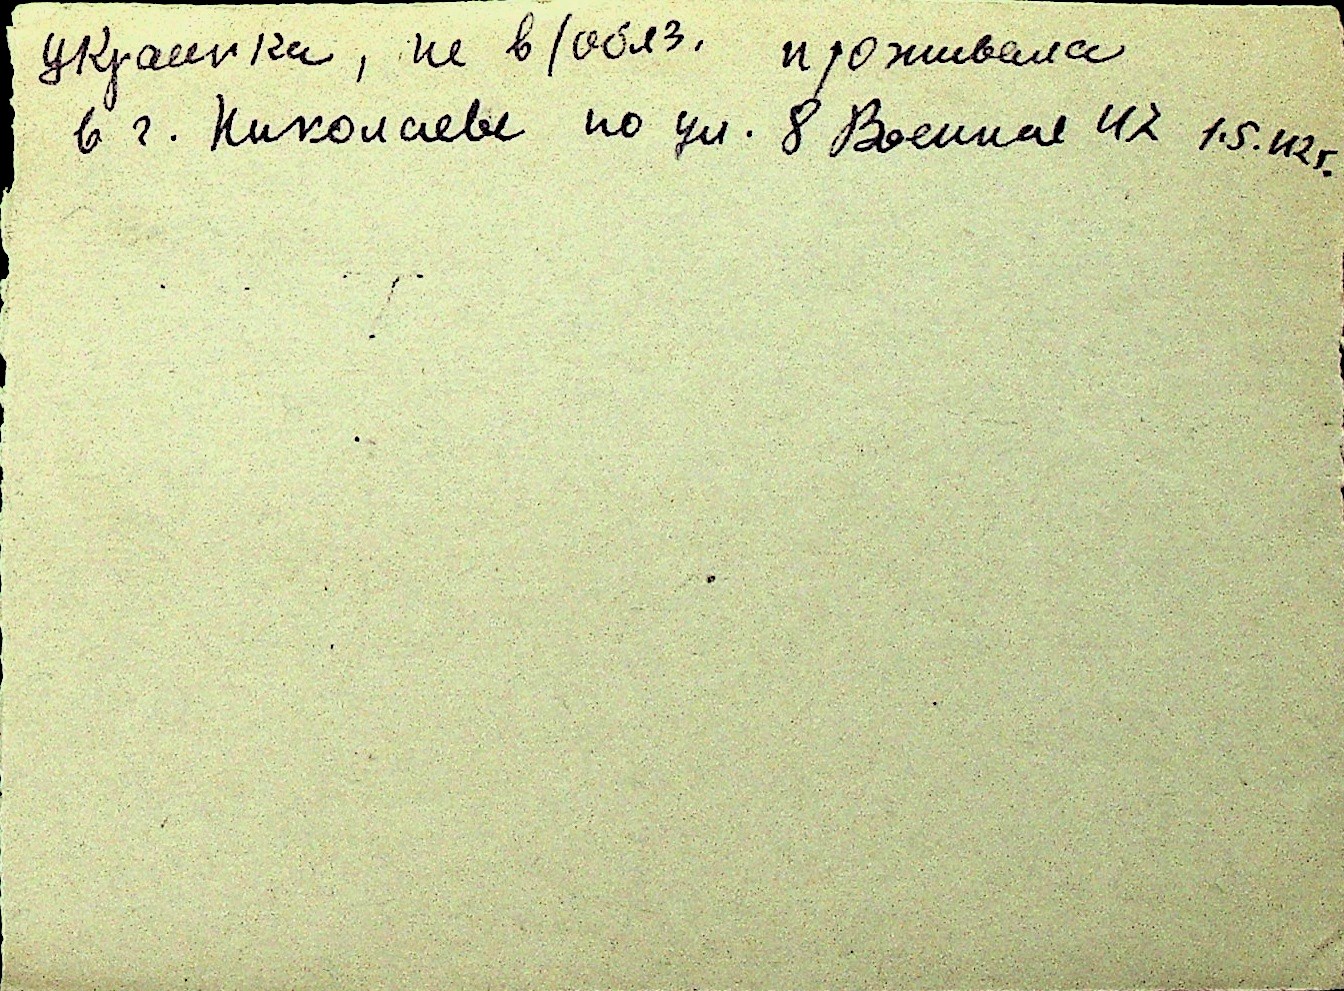 украинка, не в/обяз. проживала
в г. Николаеве по ул. 8 Военная 42 1.5.42г.